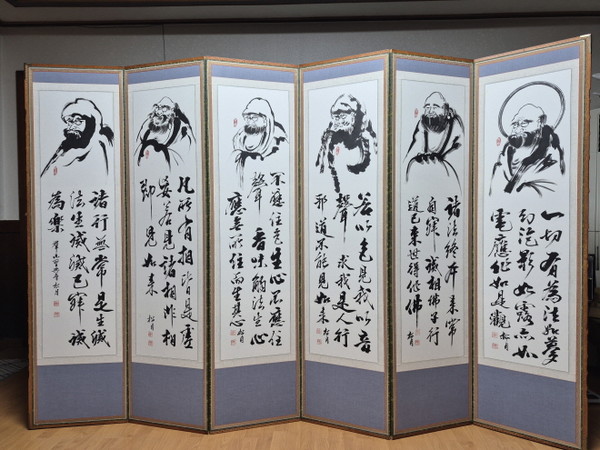 一切有為法如夢
幻泡影如露亦如
電應作如是觀 松月
諸法從本來常
自寂滅相佛子行
道已來世得作佛 松月
若以色見我以音
聲求我是人行
邪道不能見如來 松月
不應住色生心不應住
聲香味觸法生心
應無所住而生其心 松月
凡所有相皆是虛
妄若見諸相非相
即見如來 松月
諸行無常是生滅
法生滅滅已寂滅
為樂 松月